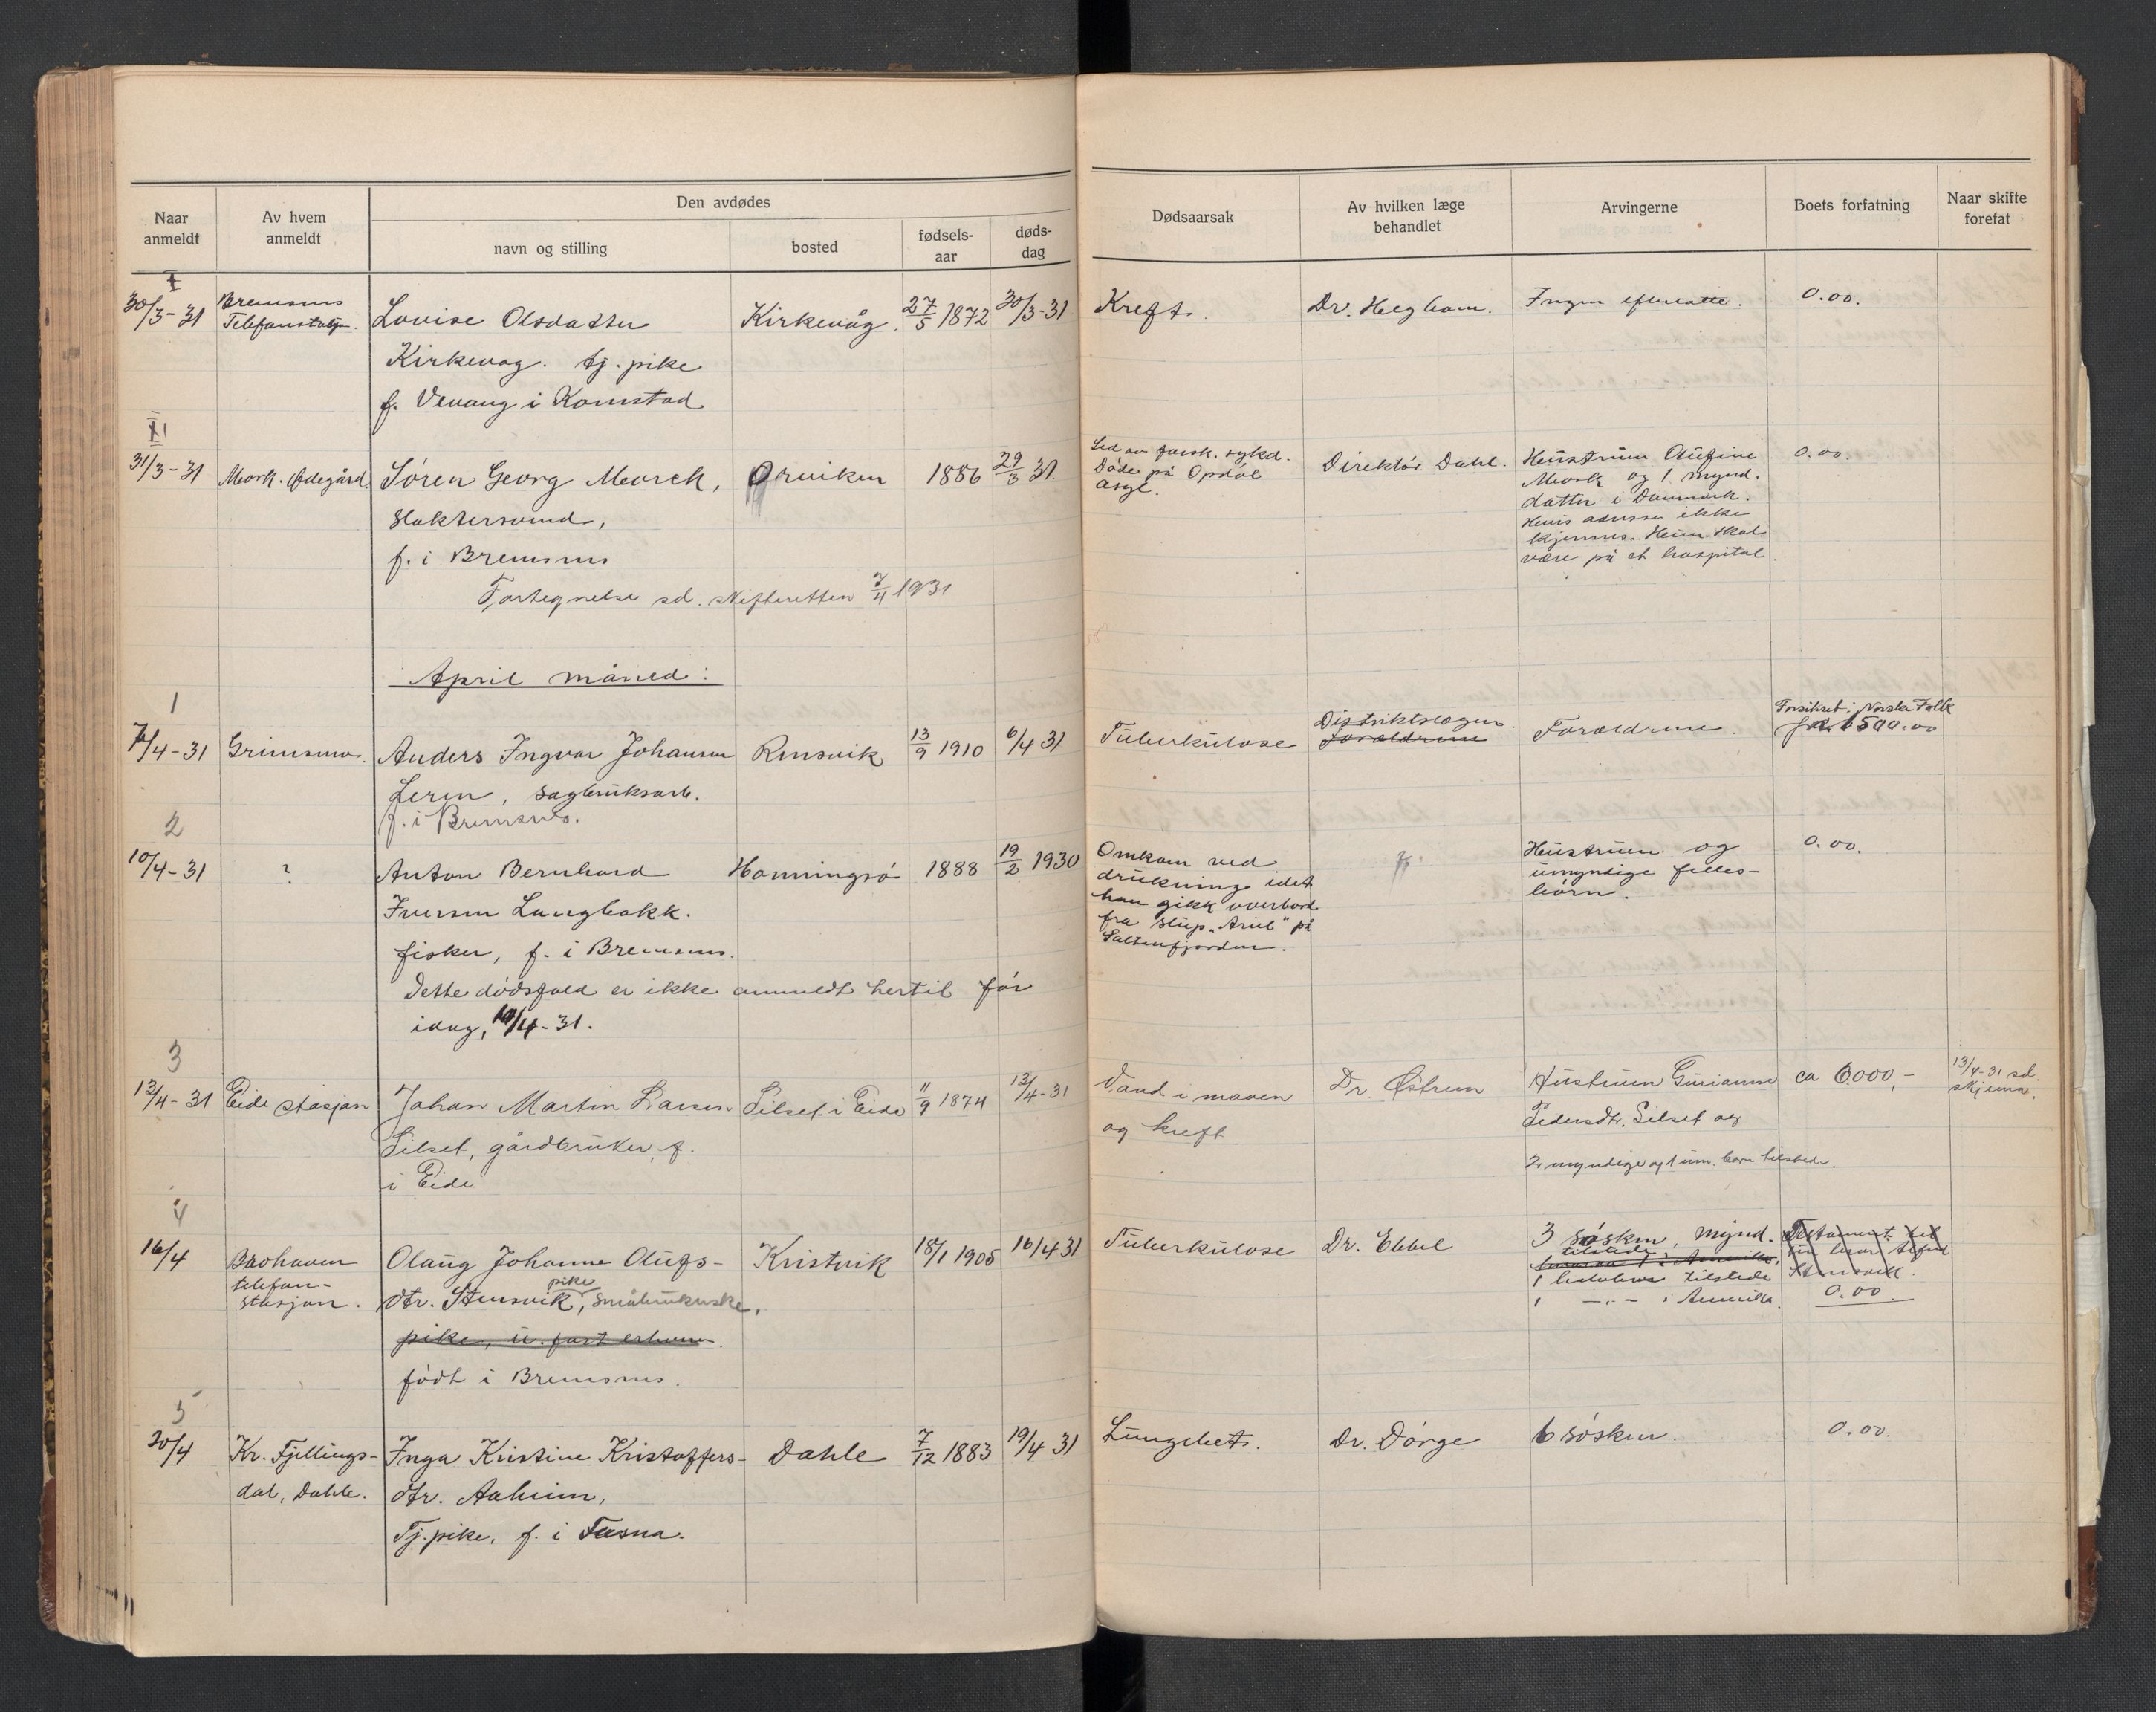 Naar anmeldt
Av hvem anmeldt
Den avdødes
navn og stilling
bosted
fødsels-aar
døds-dag
Dødsaarsak
Av hvilken læge behandlet
Arvingerne
Boets forfatning
Naar skifte foretat
30/3-31
Bremsnes
Telefonstasjon.
Lovise Olsdatter
Kirkevåg.
27/5 1872
30/3-31
Kreft.
Dr. Heghom.
Ingen efterlatte.
0.00.
Kirkevag. tj. pike
f. Vevang i Kornstad
II
31/3-31
Mork. Ødegård.
Søren Georg Morck,
Orviken
1886
29/3 31.
slaktersvend,
f. i Bremsnes
Fortegnelse sd. skifteretten 7/4 1931
Led av forsk. sykd.
Døde på Opdøl
asyl.
Direktør Dahl.
Hustruen Olufine
Mork og 1 mynd.
datter i Danmark.
Hvis adresse ikke
kjennes. Hun skal
være på et hospital.
0.00.
April måned:
1
7/4-31
Grimsmo.
Anders Ingvar Johansen
Rensvik
13/9 1910
6/4 31
Leren, sagbruksarb.
f. i Bremsnes.
Tuberkulose
Distriktslægen.
Foreldrene
Foreldrene.
Forsikret i Norske Folk
for 1500.00
2
10/4-31
?
Anton Bernhard
Honningsø
1888
19/2 1930
Iversen Langbakk.
fisker, f. i Bremsnes.
Dette dødsfald er ikke anmeldt hertil før
idag, 10/4-31.
Omkom ved
drukning idet
han gikk overbord
fra slup "Ariel" på
Saltenfjorden.
Hustruen og
umyndige felles-
børn.
0.00.
3
13/4-31
Eide stasjon
Johan Martin Larsen
Silset i Eide
11/9 1874
12/4-31
Silset, gårdbruker, f.
i Eide
Vand i maven
og kreft
Dr. Østrem
Hustruen Gurianna
Pedersdtr. Silset og
2 myndige og 1 um. barn tilstede.
ca 6000,-
13/4-31 sd.
skjema.
4
16/4
Brohaven
telefon-
stasjon.
Olaug Johanne Olufs-
Kristvik
18/1 1905
16/4 31
dtr. Stensvik, pike småbrukerske,
pike, u. fast erhverv.
født i Bremsnes.
Tuberkulose
Dr. Ebbel
3 søsken, mynd.
tilstede
1 halvbror tilstede
1 -"- i Amerika.
Testament til
0.00.
5
20/4
Kr. Fjellings-
dal, Dahle.
Inga Kristine Kristoffers-
Dahle
7/12 1883
19/4 31
dtr. Aaheim,
Tj. pike, f. i Tusna.
Lungebet.
Dr. Dørge
6 søsken.
0.00.